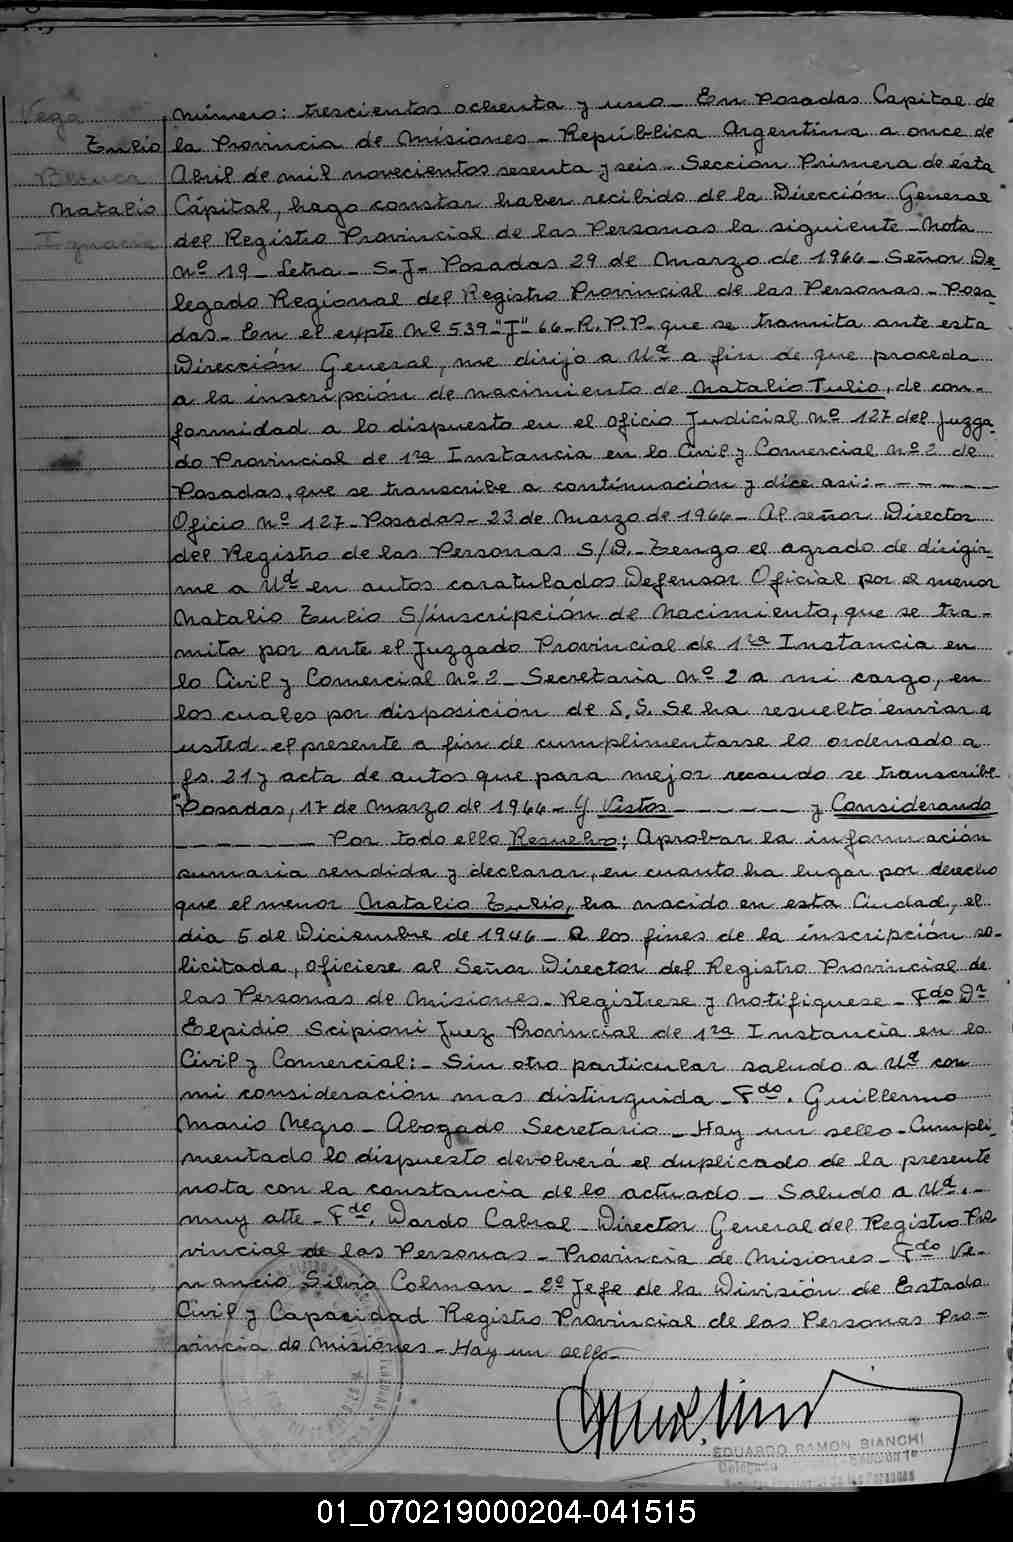 Vega
Tulio
Blanca
Natalio
Ignacia
número: trescientos ochenta y uno_ En Posadas Capital de
la Provincia de Misiones_ República Argentina a once de
Abril de mil novecientos sesenta y seis_ Sección Primera de ésta
Cápital, hago constar haber recibido de la Dirección General
del Registro Provincial de las Personas la siguiente_ Nota
Nº 19_ Letra_ S-J- Posadas 29 de Marzo de 1966_ Señor De-
legado Regional del Registro Provincial de las Personas_ Posa-
das_ En el expte Nº 539-"J"-66-R.P.P. que se tramita ante esta
Dirección General, me dirijo a Ud a fin de que proceda
a la inscripción de nacimiento de Natalio Tulio, de con-
formidad a lo dispuesto en el oficio Judicial nº 127 del Juzga-
do Provincial de 1ra Instancia en lo Civil y Comercial nº 2 de
Posadas, que se transcribe a continuación y dice asi:- - - - - -
Oficio Nº 127_ Posadas_ 23 de Marzo de 1966_ Al señor Director
del Registro de las Personas S/D._ Tengo el agrado de dirigir-
me a Ud en autos caratulados Defensor Oficial por el menor
Natalio Tulio S/inscripción de Nacimiento, que se tra-
mita por ante el Juzgado Provincial de 1ra Instancia en
lo Civil y Comercial nº 2_ Secretaria nº 2 a mi cargo, en
los cuales por disposición de S.S. Se ha resuelto enviar a
usted el presente a fin de cumplimentarse lo ordenado a
fs. 21 y acta de autos que para mejor recaudo se transcribe
"Posadas, 17 de Marzo de 1966_ Y Vistos _ _ _ _ _ y Considerando
_ _ _ _ _ _ Por todo ello Resuelvo; Aprobar la información
sumaria rendida y declarar, en cuanto ha lugar por derecho
que el menor Natalio Tulio, ha nacido en esta Ciudad, el
dia 5 de Diciembre de 1946_ A los fines de la inscripción so-
licitada, oficiese al Señor Director del Registro Provincial de
las Personas de Misiones_ Registrese y Notifiquese_ Fdo Dr
Eepidio Scipioni Juez Provincial de 1ra Instancia en lo
Civil y Comercial:_ Sin otro particular saludo a Ud con
mi consideración mas distinguida_ Fdo. Guillermo
Mario Negro_ Abogado Secretario_ Hay un sello_ Cumpli-
mentado lo dispuesto devolverá el duplicado de la presente
nota con la constancia de lo actuado_ Saludo a Ud._
muy atte_ Fdo. Dardo Cabral_ Director General del Registro Pro
vincial de las Personas_ Provincia de Misiones_ Fdo Ve-
nancio Silvio Colman_ 2º Jefe de la División de Estado
Civil y Capacidad Registro Provincial de las Personas Pro-
vincia de Misiones_ Hay un sello_
EDUARDO RAMON BIANCHI
Delegado
01_070219000204-041515